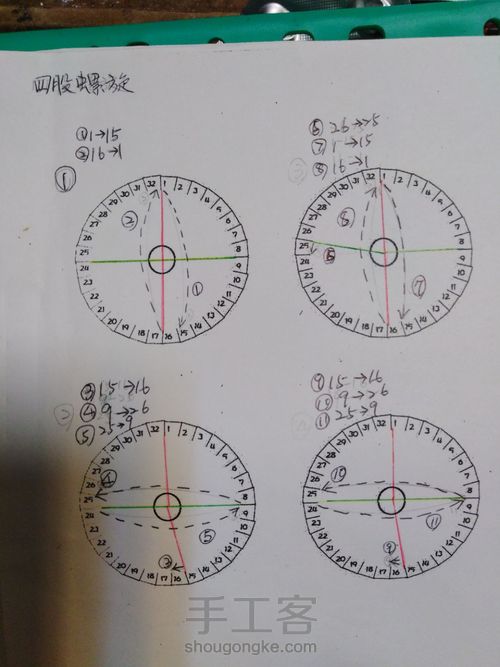 四股螺旋
①1→15
②16→1
①
32 1 2 3 4 5 6 7 8 9 10 11 12 13 14 15 16 17 18 19 20 21 22 23 24 25 26 27 28 29 30 31
②
①
⑥26→25
⑦1→15
⑧16→1
③
32 1 2 3 4 5 6 7 8 9 10 11 12 13 14 15 16 17 18 19 20 21 22 23 24 25 26 27 28 29 30 31
⑧
⑥
⑦
③15→16
④9→26
⑤25→9
②
32 1 2 3 4 5 6 7 8 9 10 11 12 13 14 15 16 17 18 19 20 21 22 23 24 25 26 27 28 29 30 31
④
⑤
③
⑨15→16
⑩9→26
⑪25→9
32 1 2 3 4 5 6 7 8 9 10 11 12 13 14 15 16 17 18 19 20 21 22 23 24 25 26 27 28 29 30 31
⑩
⑪
⑨
手工客
shougongke.com